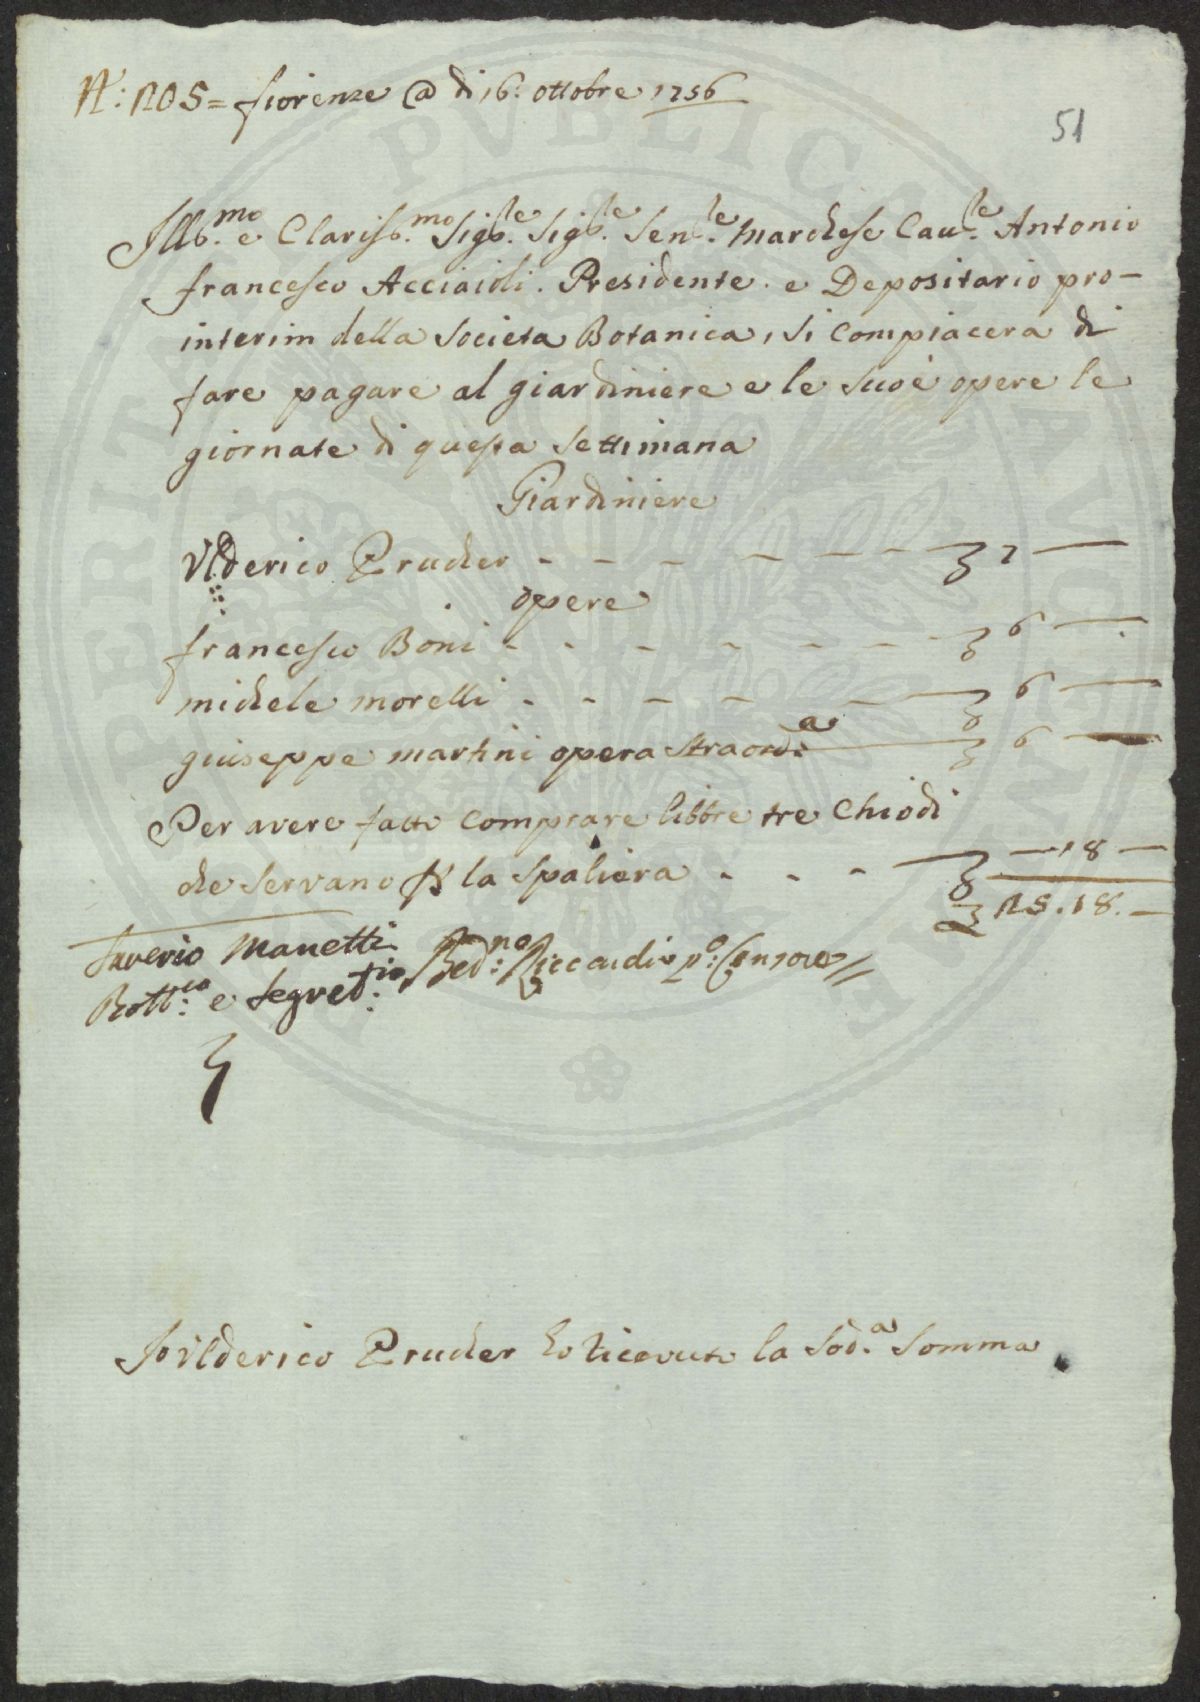 N.: 205 = fiorenze @ di 16: ottobre 1756
51
Ill.mo e Clariss.mo Sig.re Sig.re Sen.re Marchese Cau.re Antonio
francesco Acciaioli. Presidente. e Depositario pro-
interim della Societa Botanica, si compiacera di
fare pagare al giardiniere e le suoe opere le
giornate di questa settimana
Giardiniere
Vlderico Prucher - - - - - - - 7 —
opere
francesco Boni - - - - - - - 6 —
michele morelli - - - - - 6 —
giuseppe martini opera straord.a 6 —
Per avere fatto comprare libbre tre chiodi
che servano p la spaliera - - - — 18 —
25.18.—
Saverio Manetti
Bott.co e Segret.rio
Bed.no Riccardi p.o Censore
Io Vlderico Prucher ho ricevuto la sod.a somma
PERITA PVBLICAE